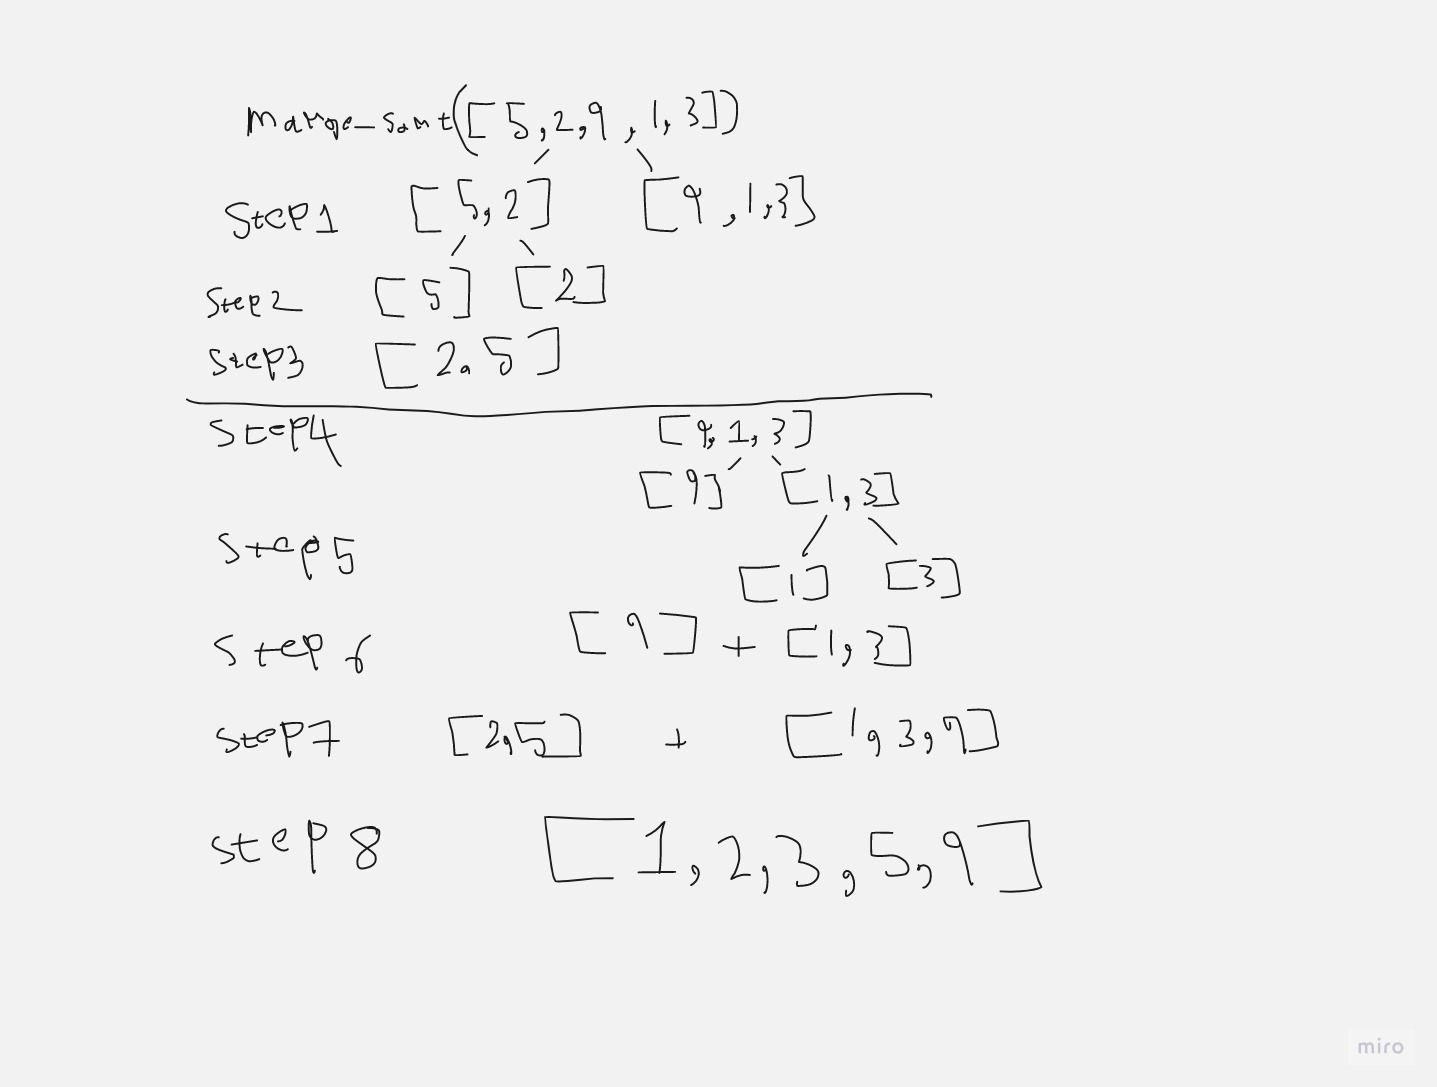 marge_sort([5,2,9,1,3])
Step1 [5,2] [9,1,3]
Step2 [5] [2]
Step3 [2,5]
Step4 [9,1,3]
[9] [1,3]
Step 5
[1] [3]
Step 6 [9] + [1,3]
Step7 [2,5] + [1,3,9]
Step 8 [1,2,3,5,9]
miro